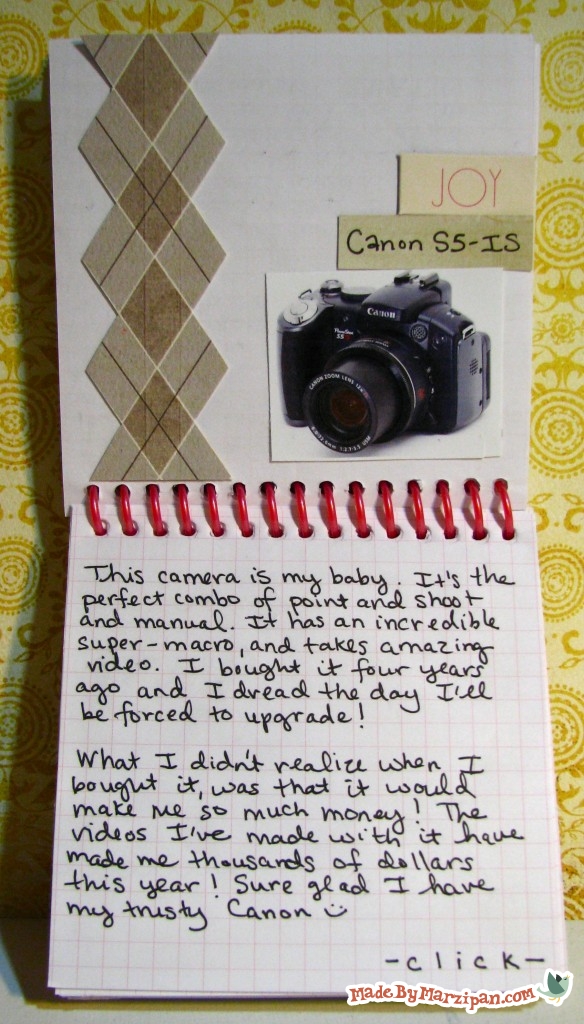 JOY
Canon S5-IS
Canon
PowerShot
S5 IS
CANON ZOOM LENS 12x
1:2.7-3.5 USM
This camera is my baby. It's the
perfect combo of point and shoot
and manual. It has an incredible
super-macro, and takes amazing
video. I bought it four years
ago and I dread the day I'll
be forced to upgrade!
What I didn't realize when I
bought it, was that it would
make me so much money! The
videos I've made with it have
made me thousands of dollars
this year! Sure glad I have
my trusty Canon
-click-
MadeByMarzipan.com